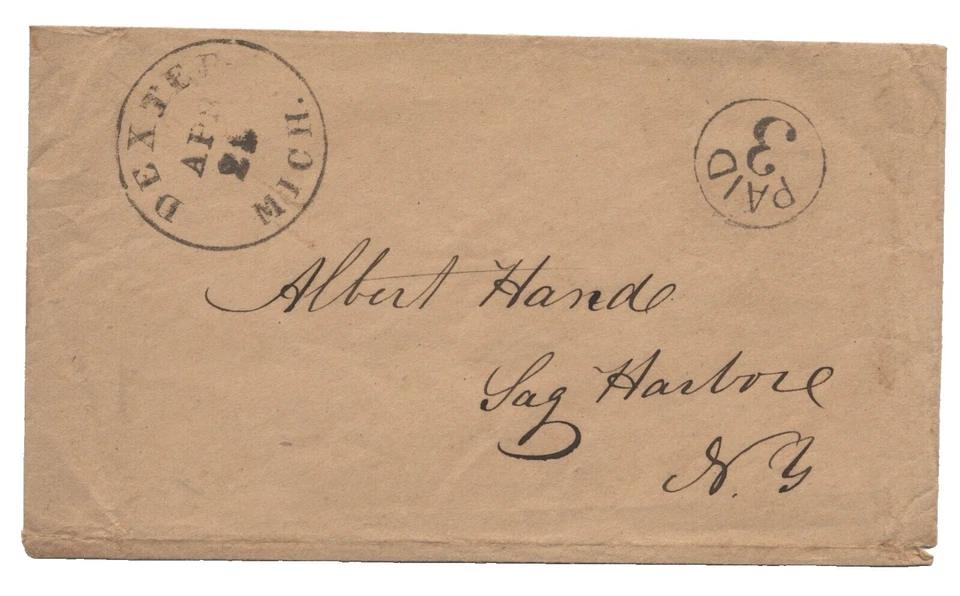 DEXTER
MICH.
APR
21
PAID
3
Albert Hand
Sag Harbore
N. Y